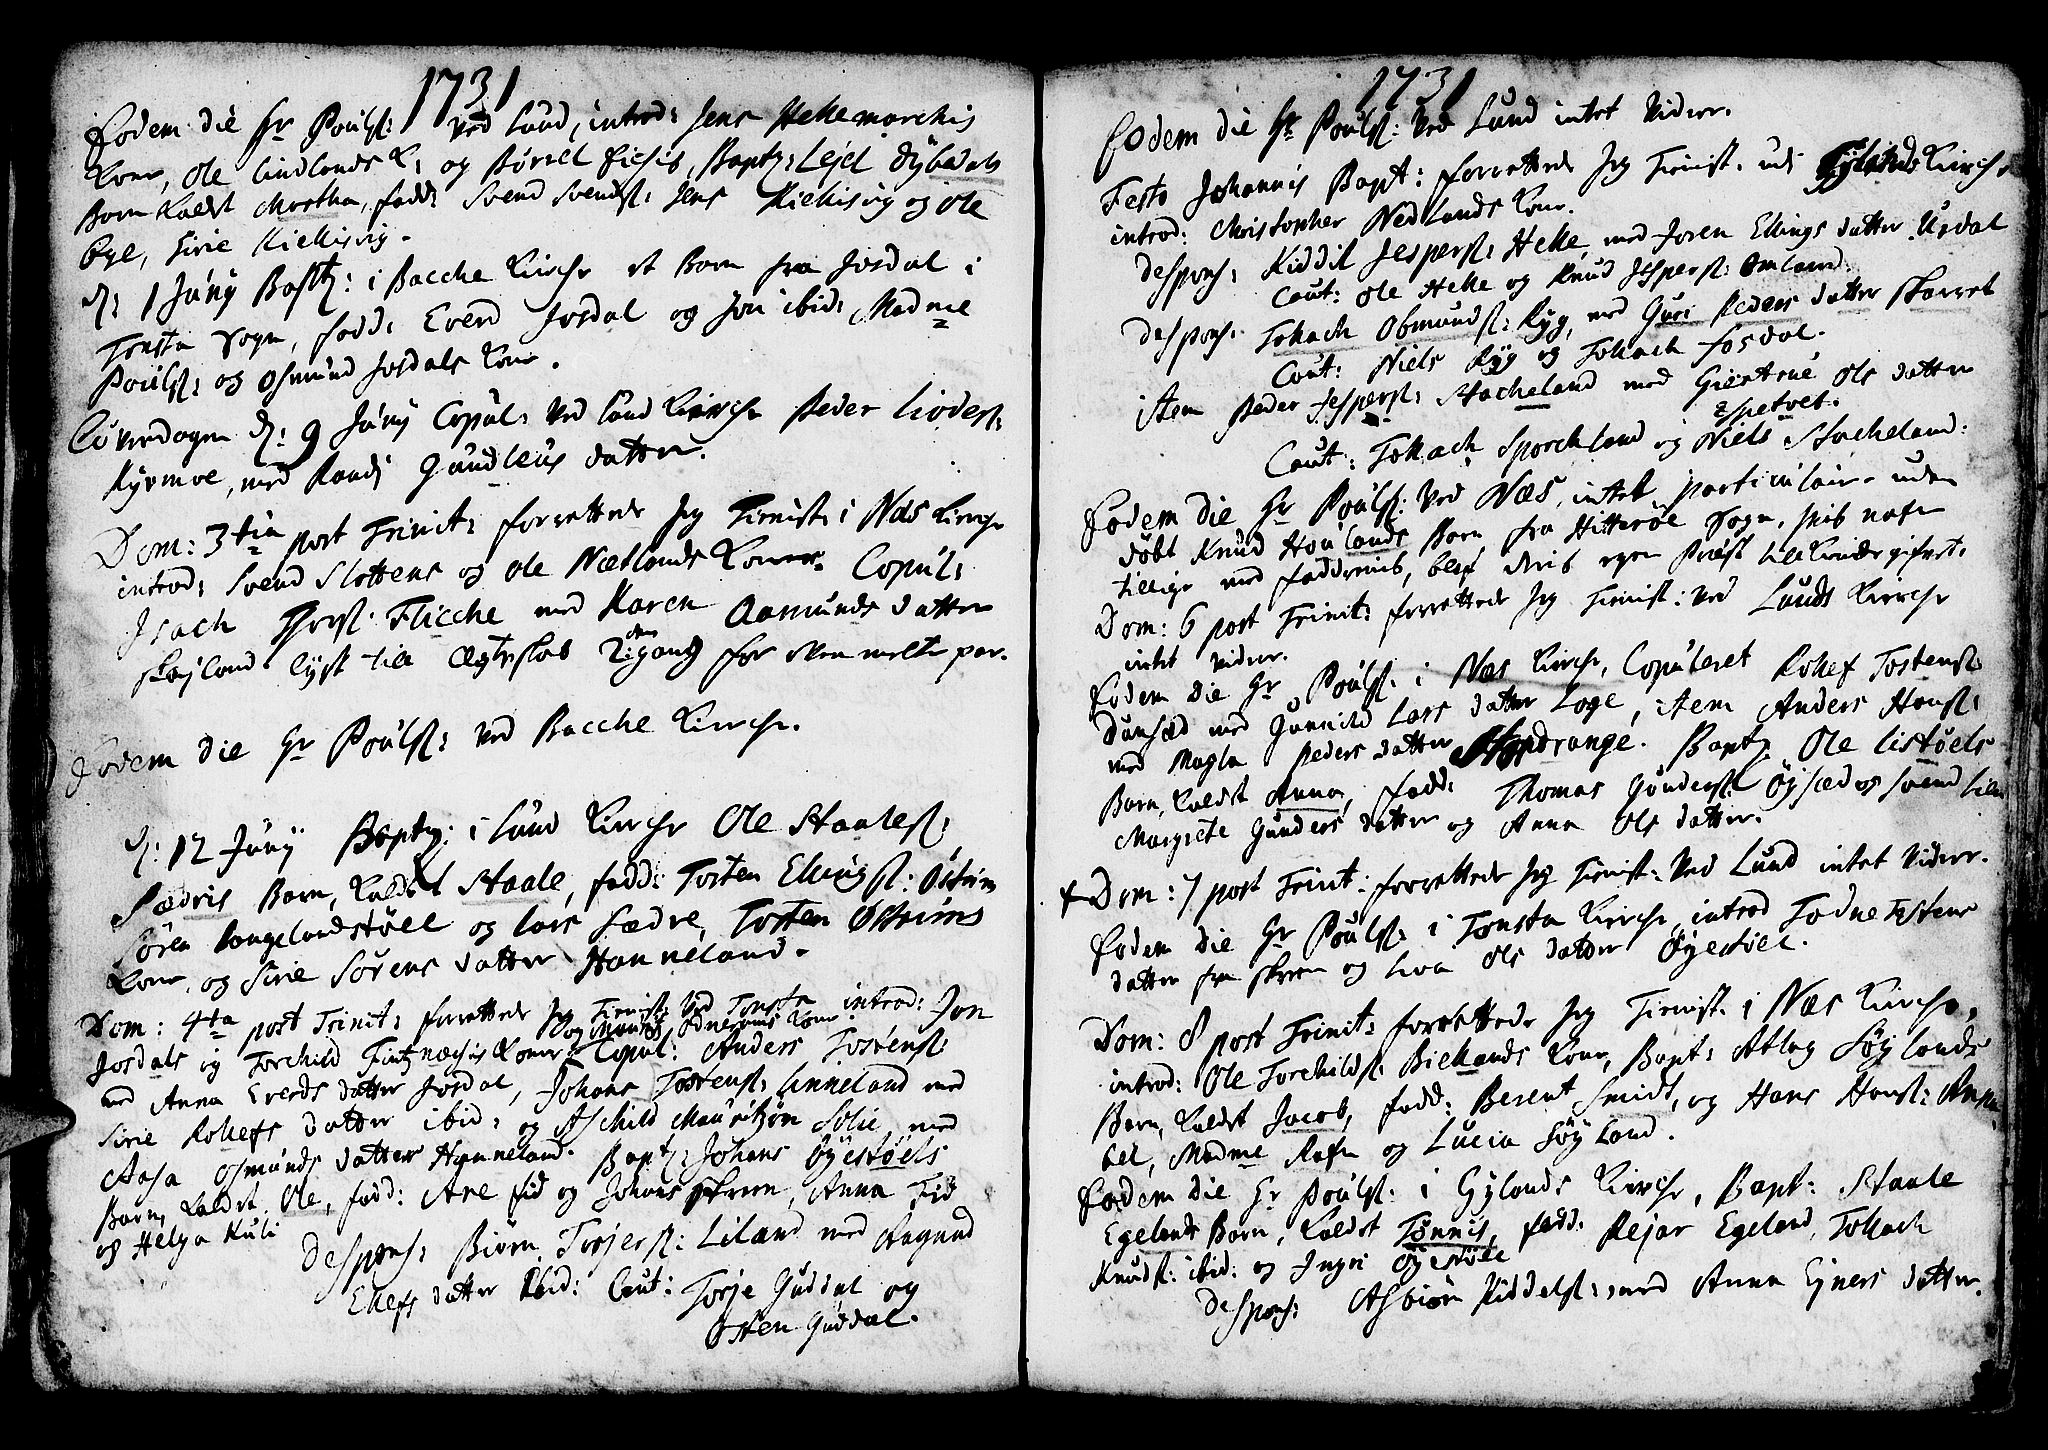 1731
Eodem die Hr Poulß: ved Lund, introd: Jens Hellemarchis
Kone, Ole Lindlands K: og Børrel Eiesis, Baptz: Lejel Dybedals
Barn kaldet Martha, fadd: Svend Svendß: Jens Kiellisvig og Ole
Bye, Sirie Kiellisvig.
d: 1 Junÿ Baptz: i Bacche Kirche et Barn fra Josdal i
Tonsta Sogn, fadd: Everd Josdal og Jon ibid: Madme
Poulß: og Osmund Josdals Kone.
Løverdagen d: 9 Junÿ Copul: ved Lund Kirche Peder Liodersß:
Rysmoe, med Randj Gundleus datter.
Dom: 3tia post Trinit: forrettede Jeg Tienist: i Næs Kirche
introd: Svend Slottens og Ole Nætlands Koner. Copul:
Isach Flicche med Karen Aamunds datter
Skajland. lyst till Ægteskab 2den gang for den melte par.
Eodem die Hr Poulß: ved Bacche Kirche.
d: 12 Junÿ Baptz: i Lund Kirche Ole Staaleß:
Sædris Barn, kaldet Staale, fadd: Tosten Ellingß: Østrim
Søren Langelandstøll og Lars Sædre, Tosten Østrims
Kone, og Sirie Sørens datter Hanneland.
Dom: 4ta post Trinit: forrettede Jeg Tienist: ved Tonsta introd: Jon
Josdals og Torchild Fintznæsis Koner Copul: Anders Tostensß
med Anna Everds datter Josdal, Johans Tostensß: Linneland med
Sirie Rollefs datter ibid: og Aschild Mauritzøn Solie med
Aasa Osmunds datter Hanneland. Baptz: Johans Øyestøels
Barn, kaldet Ole, fadd: Are Fid og Johans Skreen, Anna Fid
og Helga Kuli
Despons: Biørn Torjersß: Liland med Aagund
Ellefs datter ibid: Caut: Torje Guddal og
Sten Guddal.
1731
Eodem die Hr Poulß: ved Lund intet videre.
Festo Johannis Bapt: forrettede Jeg Tienist: udi Gylands Kirche
introd: Christopher Nedlands Kone.
despons: Kiddil Jespersß: Helle, med Joren Ellings datter Ursdal
Caut: Ole Helle og Knud Jespersß: Omland.
despons: Tollach Obmundsß: Ryg, med Guri Peders datter Skarret
Caut: Niels Ryg og Tollach Josdal.
item Peder Jespersß: Stacheland med Giertrue Ols datter
Espetvet.
Caut: Tollach Sporchland og Niels Stacheland:
Eodem die Hr Poulß: ved Næs, intet particulair uden
døbt Knud Houlands Barn fra Hitterøe Sogn, hvis nafn
tillige med fadderenis, blef deris egen Præst tilkiende gifvet.
Dom: 6 post Trinit: forrettede Jeg Tienist: ved Lunds Kirche
intet videre.
Eodem die Hr Poulß: i Næs Kirche, Copuleret Rollef Tostensß:
Dunsæd med Gunnild Lars datter Loge, item Anders Hansß:
med Magla Peders datter Stordrange. Baptz. Ole Listøels
Barn, kaldet Anna, fadd: Thomas Gundersß Øysæd og Svend
Margrete Gunders datter og Anna Ols datter.
+ Dom: 7 post Trinit: forrettede Jeg Tienist: ved Lund intet videre.
Eodem die Hr Poulß: i Tonsta Kirche, introd Todne Tostens
datter fra Skreen og Liva Ols datter Øyestøel.
Dom: 8 post Trinit: forrettede Jeg Tienist: i Næs Kirche,
introd: Ole Torchildsß: Biellands Kone, Bapt: Atlag Søylands
Barn, kaldet Jacob, fadd: Berent Smidt, og Hans Hansß:
bel, Madme Rafn og Lucia Søyland.
Eodem die Hr Poulß: i Gylands Kirche, Bapt: Staale
Egelands Barn, kaldet Tønnis, fadd: Rejar Egeland, Tollach
Knudsß: ibid: og Ingri Øyestøle
Despons: Asbiørn Kiddelsß: med Anna Ejners datter.